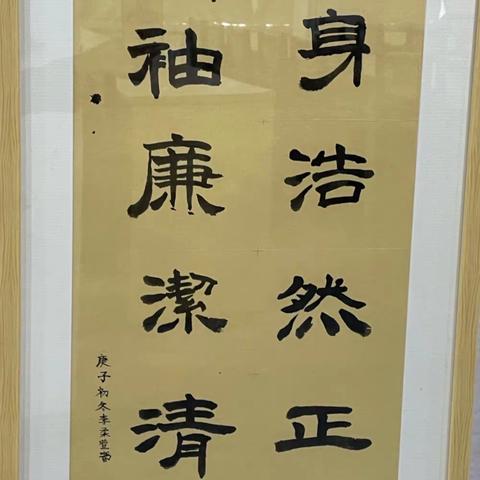 身浩然正
袖廉潔清
庚子初冬李柔萱書